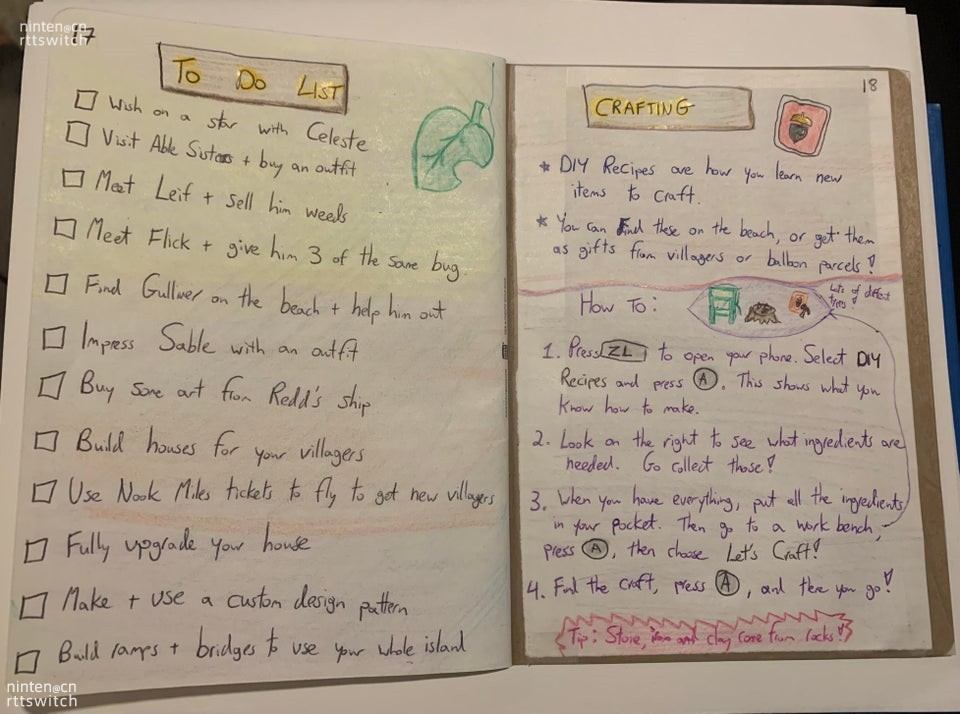 ninten@cn
rttswitch
17
TO DO LIST
Wish on a star with Celeste
Visit Able Sisters + buy an outfit
Meet Leif + sell him weeds
Meet Flick + give him 3 of the same bug.
Find Gulliver on the beach + help him out
Impress Sable with an outfit
Buy some art from Redd's ship
Build houses for your villagers
Use Nook Miles tickets to fly to get new villagers
Fully upgrade your house
Make + use a custom design pattern
Build ramps + bridges to use your whole island
ninten@cn
rttswitch
18
CRAFTING
* DIY Recipes are how you learn new
items to craft.
* You can find these on the beach, or get them
as gifts from villagers or balloon parcels!
How To:
Lots of diffent
types!
1. Press ZL to open your phone. Select DIY
Recipes and press A. This shows what you
know how to make.
2. Look on the right to see what ingredients are
needed. Go collect those!
3. When you have everything, put all the ingredients
in your pocket. Then go to a work bench,
press A, then choose Let's Craft!
4. Find the craft, press A, and there you go!
Tip: Stone, iron and clay come from rocks!